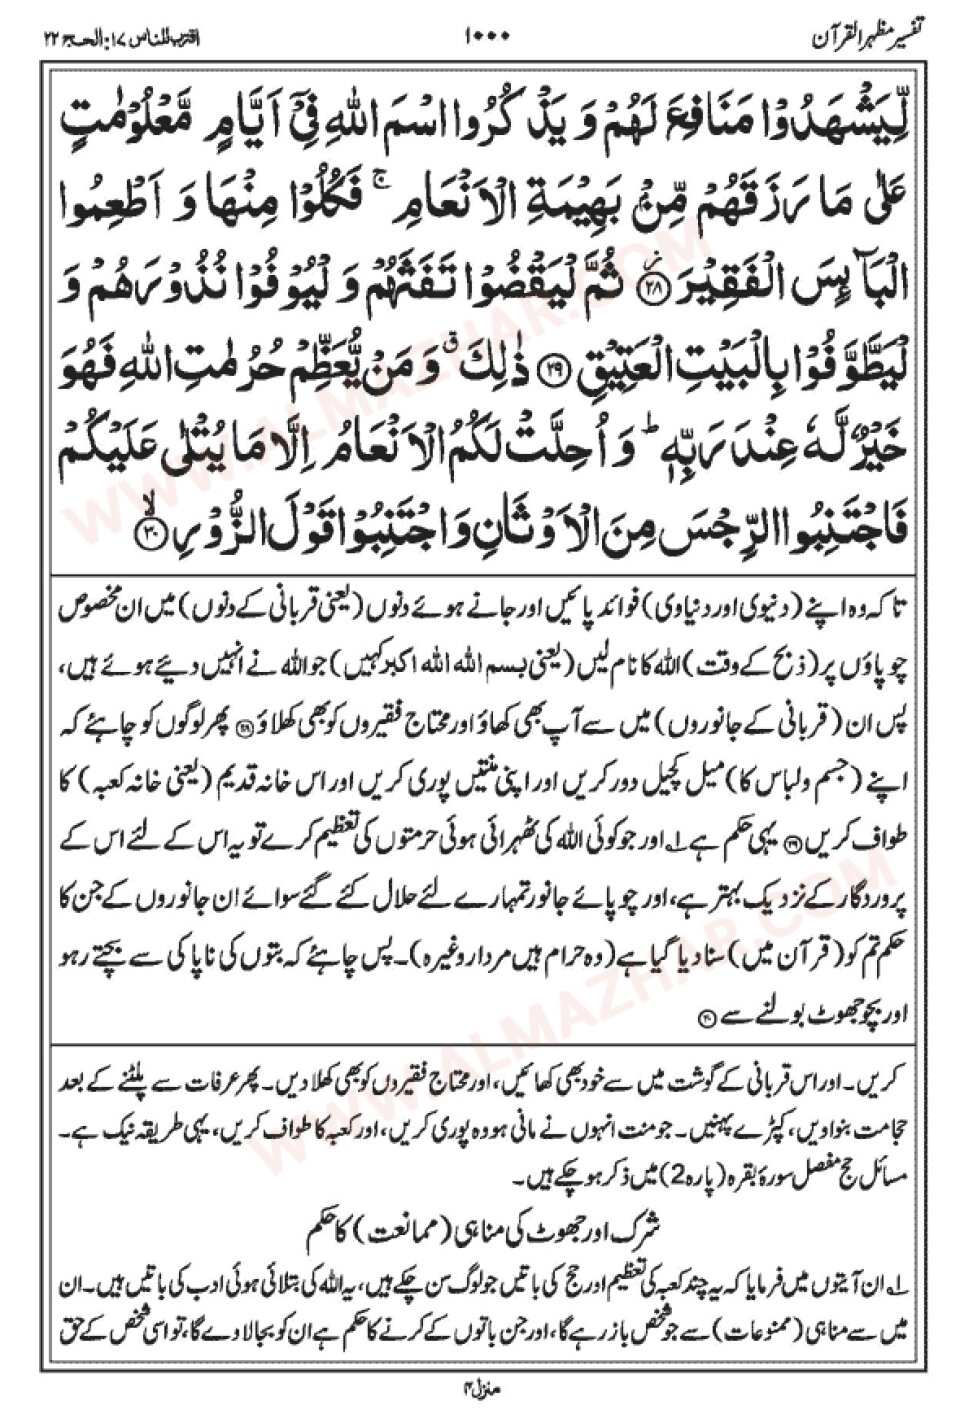 تفسیر مظہرالقرآن ۱۰۰۰ اقترب للناس ۱۷: الحج ۲۲
لِّيَشْهَدُوْا مَنَافِعَ لَهُمْ وَ يَذْكُرُوا اسْمَ اللهِ فِيْۤ اَيَّامٍ مَّعْلُوْمٰتٍ
عَلٰى مَا رَزَقَهُمْ مِّنْۢ بَهِيْمَةِ الْاَنْعَامِ ۚ فَكُلُوْا مِنْهَا وَ اَطْعِمُوا
الْبَآئِسَ الْفَقِيْرَ ﴿۲۸﴾ ثُمَّ لْيَقْضُوْا تَفَثَهُمْ وَ لْيُوْفُوْا نُذُوْرَهُمْ وَ
لْيَطَّوَّفُوْا بِالْبَيْتِ الْعَتِيْقِ ﴿۲۹﴾ ذٰلِكَ ۗ وَ مَنْ يُّعَظِّمْ حُرُمٰتِ اللهِ فَهُوَ
خَيْرٌ لَّهٗ عِنْدَ رَبِّهٖ ؕ وَ اُحِلَّتْ لَكُمُ الْاَنْعَامُ اِلَّا مَا يُتْلٰى عَلَيْكُمْ
فَاجْتَنِبُوا الرِّجْسَ مِنَ الْاَوْثَانِ وَ اجْتَنِبُوْا قَوْلَ الزُّوْرِ ﴿۳۰﴾ۙ
تاکہ وہ اپنے (دنیوی اور دنیاوی) فوائد پائیں اور جانے ہوئے دنوں (یعنی قربانی کے دنوں) میں ان مخصوص
چوپاؤں پر (ذبح کے وقت) اللہ کا نام لیں (یعنی بسم اللہ اللہ اکبر کہیں) جو اللہ نے انہیں دیئے ہوئے ہیں،
پس ان (قربانی کے جانوروں) میں سے آپ بھی کھاؤ اور محتاج فقیروں کو بھی کھلاؤ ﴿۲۸﴾ پھر لوگوں کو چاہئے کہ
اپنے (جسم و لباس کا) میل کچیل دور کریں اور اپنی منتیں پوری کریں اور اس خانہ قدیم (یعنی خانہ کعبہ) کا
طواف کریں ﴿۲۹﴾ یہی حکم ہے ۱؎ اور جو کوئی اللہ کی ٹھہرائی ہوئی حرمتوں کی تعظیم کرے تو یہ اس کے لئے اس کے
پروردگار کے نزدیک بہتر ہے، اور چوپائے جانور تمہارے لئے حلال کئے گئے سوائے ان جانوروں کے جن کا
حکم تم کو (قرآن میں) سنا دیا گیا ہے (وہ حرام ہیں مردار وغیرہ)۔ پس چاہئے کہ بتوں کی ناپاکی سے بچتے رہو
اور بچو جھوٹ بولنے سے ﴿۳۰﴾
کریں۔ اور اس قربانی کے گوشت میں سے خود بھی کھائیں، اور محتاج فقیروں کو بھی کھلا دیں۔ پھر عرفات سے پلٹنے کے بعد
حجامت بنوا ویں، کپڑے پہنیں۔ جو منت انہوں نے مانی ہو وہ پوری کریں، اور کعبہ کا طواف کریں، یہی طریقہ نیک ہے۔
مسائل حج مفصل سورۂ بقرہ (پارہ 2) میں ذکر ہو چکے ہیں۔
شرک اور جھوٹ کی مناہی (ممانعت) کا حکم
۱؎ ان آیتوں میں فرمایا کہ یہ چند کعبہ کی تعظیم اور حج کی باتیں جو لوگ سن چکے ہیں، یہ اللہ کی بتلائی ہوئی ادب کی باتیں ہیں۔ ان
میں سے مناہی (ممنوعات) سے جو شخص باز رہے گا، اور جن باتوں کے کرنے کا حکم ہے ان کو بجا لا دے گا، تو اسی شخص کے حق
منزل ۴
WWW.ALMAZHAR.COM
WWW.ALMAZHAR.COM